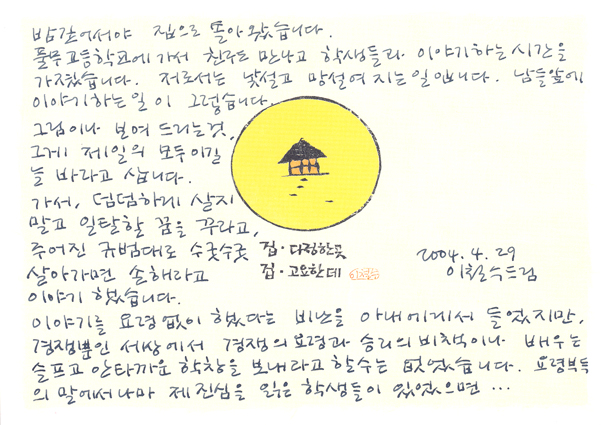 밤 깊어서야 집으로 돌아왔습니다.
풀무고등학교에 가서 친구도 만나고 학생들과 이야기하는 시간을
가졌습니다. 저로서는 낯설고 망설여지는 일입니다. 남들앞에
이야기하는 일이 그렇습니다.
그림이나 보여 드리는것,
그게 제일의 모두이길
늘 바라고 삽니다.
가서, 덤덤하게 살지
말고 일탈할 꿈을 꾸라고,
주어진 규범대로 수굿수굿
살아가면 손해라고
이야기 했습니다.
집·다정한곳
집·고요한데
2004. 4. 29
이철수드림
이야기를 요령없이 했다는 비난을 아내에게서 들었지만,
경쟁뿐인 세상에서 경쟁의 요령과 승리의 비책이나 배우는
슬프고 안타까운 학창을 보내라고 할수는 없었습니다. 요령부득
의 말에서나마 제 진심을 읽은 학생들이 있었으면 …